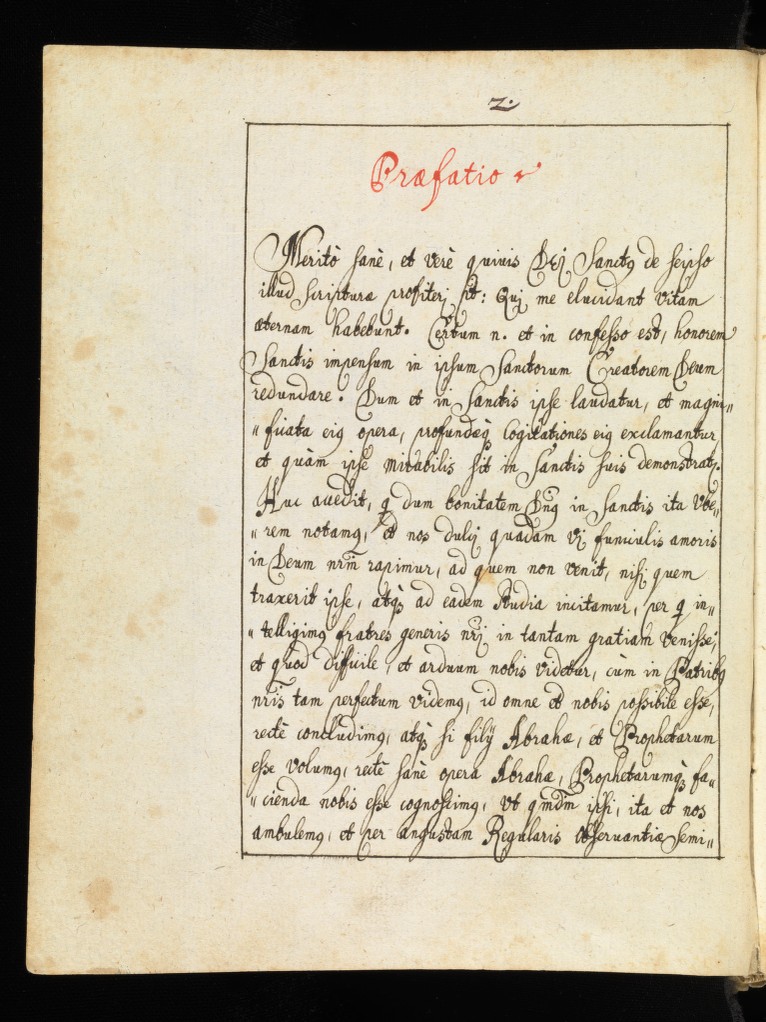 2.
Præfatio
Meritò sanè, et verè quiuis Dei Sanctꝯ de seipso
illud scripturæ profiteri sit: Qui me elucidant vitam
æternam habebunt. Certum n. et in confesso est, honorem
Sanctis impensum in ipsum Sanctorum Creatorem Deum
redundare. Dum et in Sanctis ipse laudatur, et magni〃
〃 ficata eiꝯ opera, profundæqꝫ Cogitationes eiꝯ exclamantur,
et quàm ipse mirabilis sit in Sanctis suis demonstratꝛ.
Huc accedit, ꝙ dum bonitatem Dnꝯ in Sanctis ita vbe〃
〃 rem notamꝯ, et nos dulcj quadam vj funiculis amoris
in Deum nr̃m rapimur, ad quem non venit, nisi quem
traxerit ipse, atqꝫ ad eadem studia incitamur, per ꝙ in〃
〃 telligimꝯ fratres generis nr̃j in tantam gratiam venisse,
et quod difficile, et arduum nobis videtur, cùm in Patribꝯ
nr̃is tam perfectum videmꝯ, id omne et nobis possibile esse,
rectè concludimꝯ, atqꝫ si filij Abrahæ, et Prophetarum
esse volumꝯ, rectè sanè opera Abrahæ, Prophetarumqꝫ fa〃
〃 cienda nobis esse cognoscimꝯ, Vt qm̃dm̃ ipsi, ita et nos
ambulemꝯ, et per angustam Regularis obseruantiæ semi〃